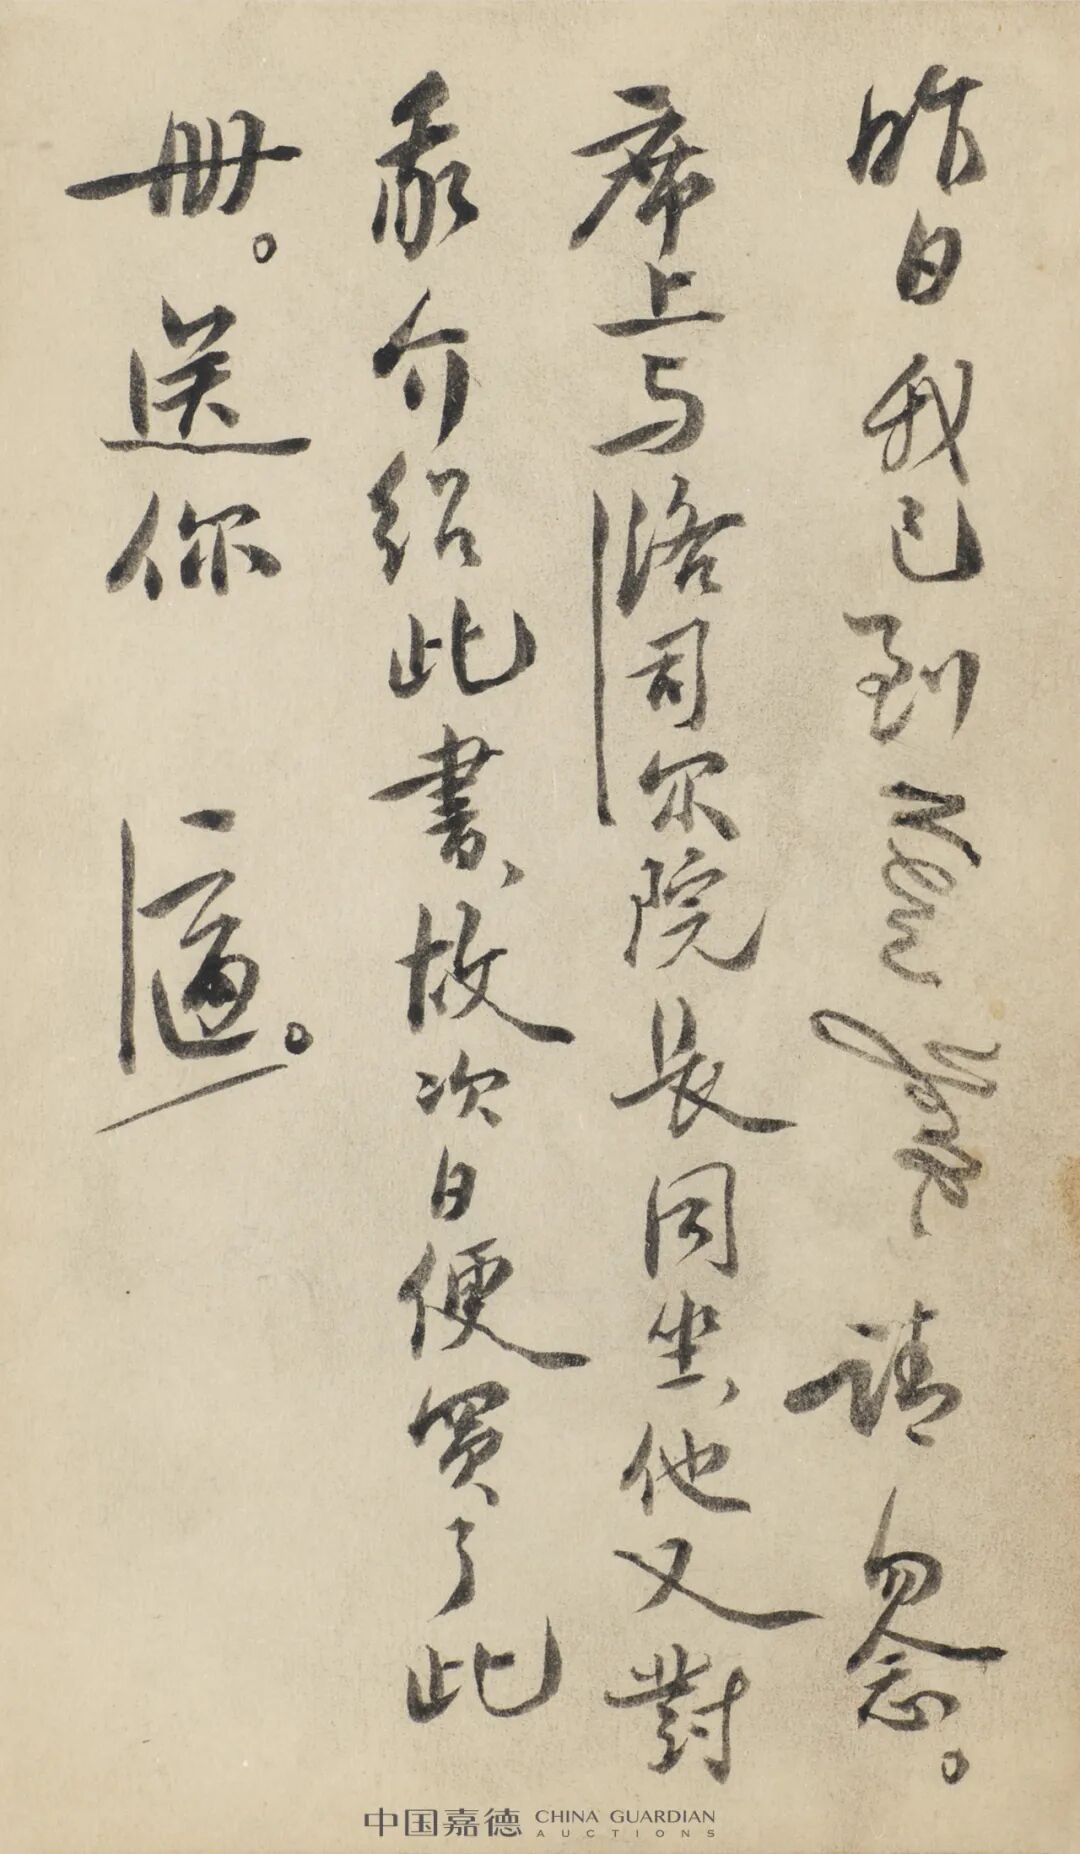 昨日我已到 New York, 請勿念。
席上与洛司尔院長同坐,他又對
介紹此書,故次日便買了此
册。送你 適。
中国嘉德 CHINA GUARDIAN
AUCTIONS